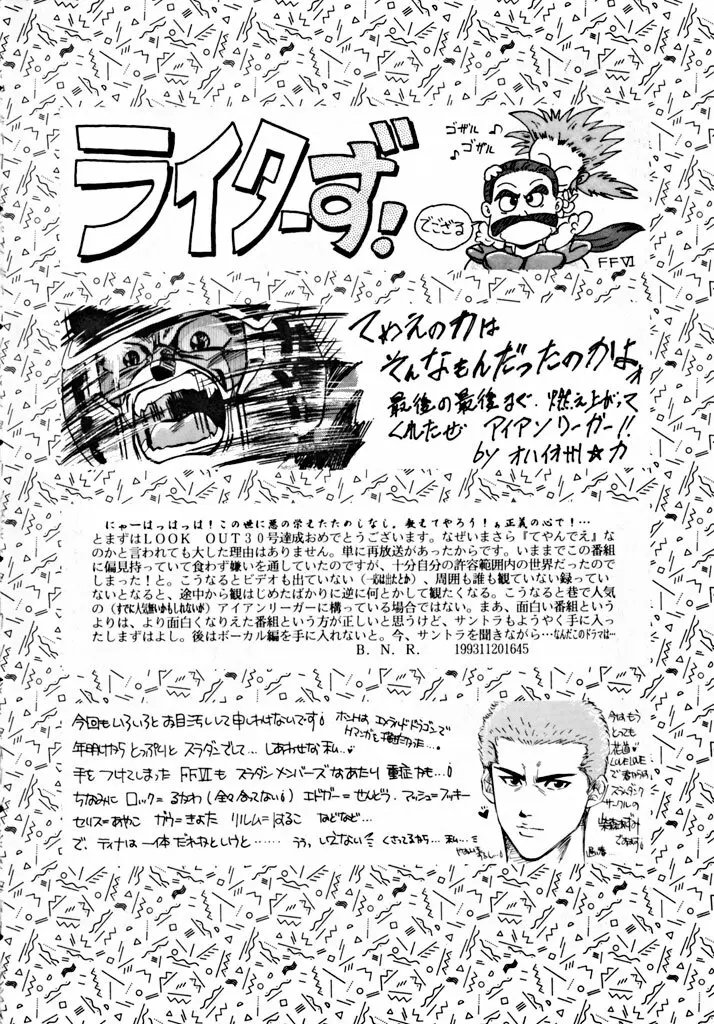 ライターず!
ゴザル♪
♪ゴザル
でござる
FFVI
てめえの力は
そんなもんだったのかよォ
最後の最後まで、燃え上がって
くれたぜ アイアンリーガー!!
by オハイオ州☆力
にゃーはっはっは!この世に悪の栄えたためしなし。教えてやろう!ぁ正義の心で!…
とまずはLOOK OUT30号達成おめでとうございます。なぜいまさら『てやんでえ』な
のかと言われても大した理由はありません。単に再放送があったからです。いままでこの番組
に偏見持っていて食わず嫌いを通していたのですが、十分自分の許容範囲内の世界だったので
しまった!と。こうなるとビデオも出ていない、周囲も誰も観ていない録ってい
ないとなると、途中から観はじめたばかりに逆に何とかして観たくなる。こうなると巷で人気
の(すでに人気無いかもしれないが)アイアンリーガーに構っている場合ではない。まあ、面白い番組という
よりは、より面白くなりえた番組という方が正しいと思うけど、サントラもようやく手に入っ
たしまずはよし。後はボーカル編を手に入れないと。今、サントラを聞きながら…なんだこのドラマは…
B.N.R. 199311201645
今回もいろいろとお目汚しして申しわけないです!
年明けから とっぷりと スラダンでして… しあわせな私…
手をつけてしまった FFVIも スラダンメンバーズなあたり 重症かも…
ちなみに ロック=るかわ(全々合ってない) エドガー=せんどう、マッシュ=フッキー
セリス=あやこ ガウ=きよた リルム=はるこ などなど…
で、ティナは一体だれなといと…… うぅ、いえない くさってるから…私…
今はもう
とても
花道
LOVELOVE
スラムダンク
サークルの